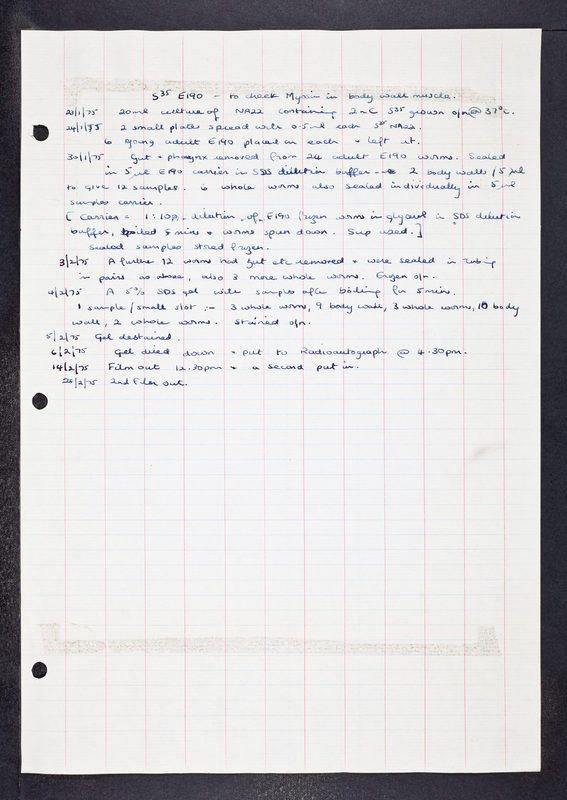 S³⁵ E190 - to check Myosin in body wall muscle.
23/1/75 20ml culture of NA22 containing 2mC S³⁵ grown o/n @ 37°c.
24/1/75 2 small plates spread with 0.5ml each S³⁵ NA22.
6 young adult E190 placed on each + left it.
30/1/75 Gut + pharynx removed from 24 adult E190 worms. Sealed
in 5µl E190 carrier in SDS dilution buffer - 2 body walls / 5µl
to give 12 samples. 6 whole worms also sealed individually in 5µl
samples carrier.
[ Carrier = 1:10 dilution of E190 frozen worms in glycerol in SDS dilution
buffer, boiled 5 mins + worms spun down. Sup used. ]
Sealed samples stored frozen.
3/2/75 A further 12 worms had gut etc removed + were sealed in tubing
in pairs as above, also 3 more whole worms. Frozen o/n.
4/2/75 A 5% SDS gel with samples after boiling for 5 mins.
1 sample / small slot :- 3 whole worms, 9 body wall, 3 whole worms, 10 body
wall, 2 whole worms. Stained o/n.
5/2/75 Gel destained.
6/2/75 Gel dried down + put to Radioautograph @ 4.30pm.
14/2/75 Film out 12.30pm + a second put in.
25/2/75 2nd Film out.